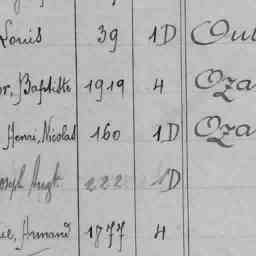 Louis 39 1D Oul
or, Baptiste 1919 4 Oza
Henri, Nicolas 160 1D Oza
Joseph Augt. 222 1D
Armand 1777 4